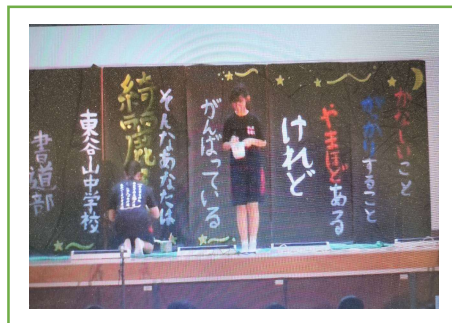 かなしいこと
がっかりすること
やまほどある
けれど
がんばっている
そんなあなたは
綺麗
東谷山中学校
書道部